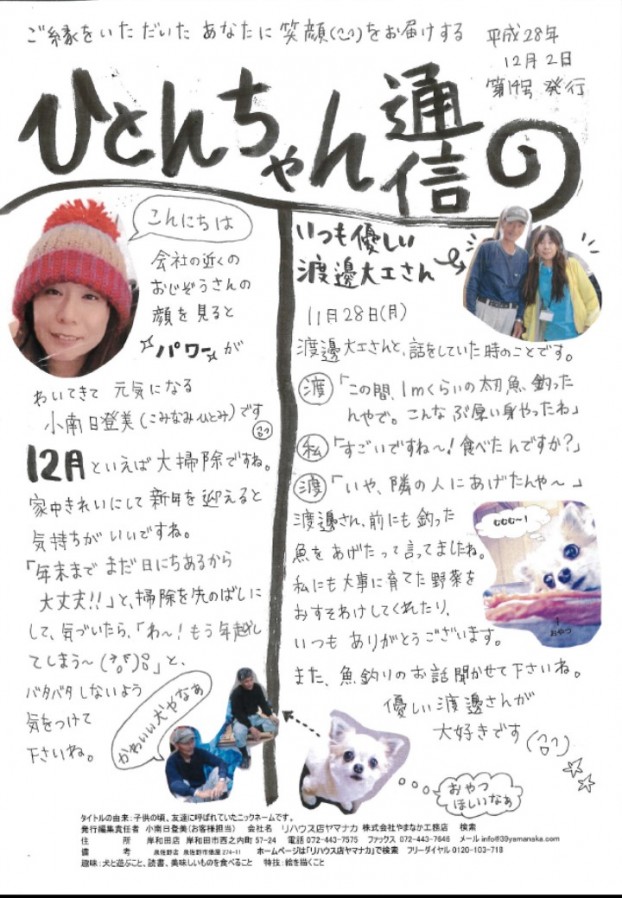 ご縁をいただいた あなたに 笑顔(^^)をお届けする
平成28年
12月2日
第14号 発行
ひとんちゃん通信の
こんにちは
会社の近くの
おじぞうさんの
顔を見ると
パワーが
わいてきて 元気になる
小南日登美(こみなみひとみ)です
12月といえば大掃除ですね。
家中きれいにして新年を迎えると
気持ちがいいですね。
「年末までまだ日にちあるから
大丈夫!!」と、掃除を先のばしに
して、気づいたら、「わ~!もう年越し
てしまう~」と、
バタバタしないよう
気をつけて
下さいね。
かわいい犬やなぁ
いつも優しい
渡邊大工さん
11月28日(月)
渡邊大工さんと、話をしていた時のことです。
渡「この間、1mくらいの太刀魚、釣った
んやで。こんなぶ厚い身やったわ」
私「すごいですね~!食べたんですか?」
渡「いや、隣の人にあげたんや~」
渡邊さん、前にも釣った
魚をあげたって言ってましたね。
私にも大事に育てた野菜を
おすそわけしてくれたり、
いつもありがとうございます。
また、魚釣りのお話聞かせて下さいね。
優しい渡邊さんが
大好きです
むむむ~!
おやつ
おやつ
ほしいなぁ
タイトルの由来:子供の頃、友達に呼ばれていたニックネームです。
発行編集責任者 小南日登美(お客様担当) 会社名 リハウス店ヤマナカ 株式会社やまなか工務店 検索
住 所 岸和田店 岸和田市西之内町57-24 電話072-443-7575 ファックス 072-443-7648 メール info@39yamanaka.com
備 考 ホームページは「リハウス店ヤマナカ」で検索 フリーダイヤル 0120-103-718
趣味:犬と遊ぶこと、読書、美味しいものを食べること 特技:絵を描くこと